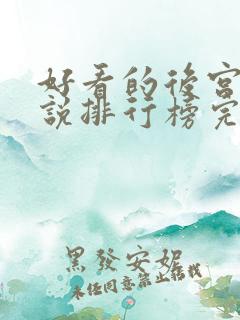 好看的後宮
說排行榜完
黑發安妮
未经同意禁止转载